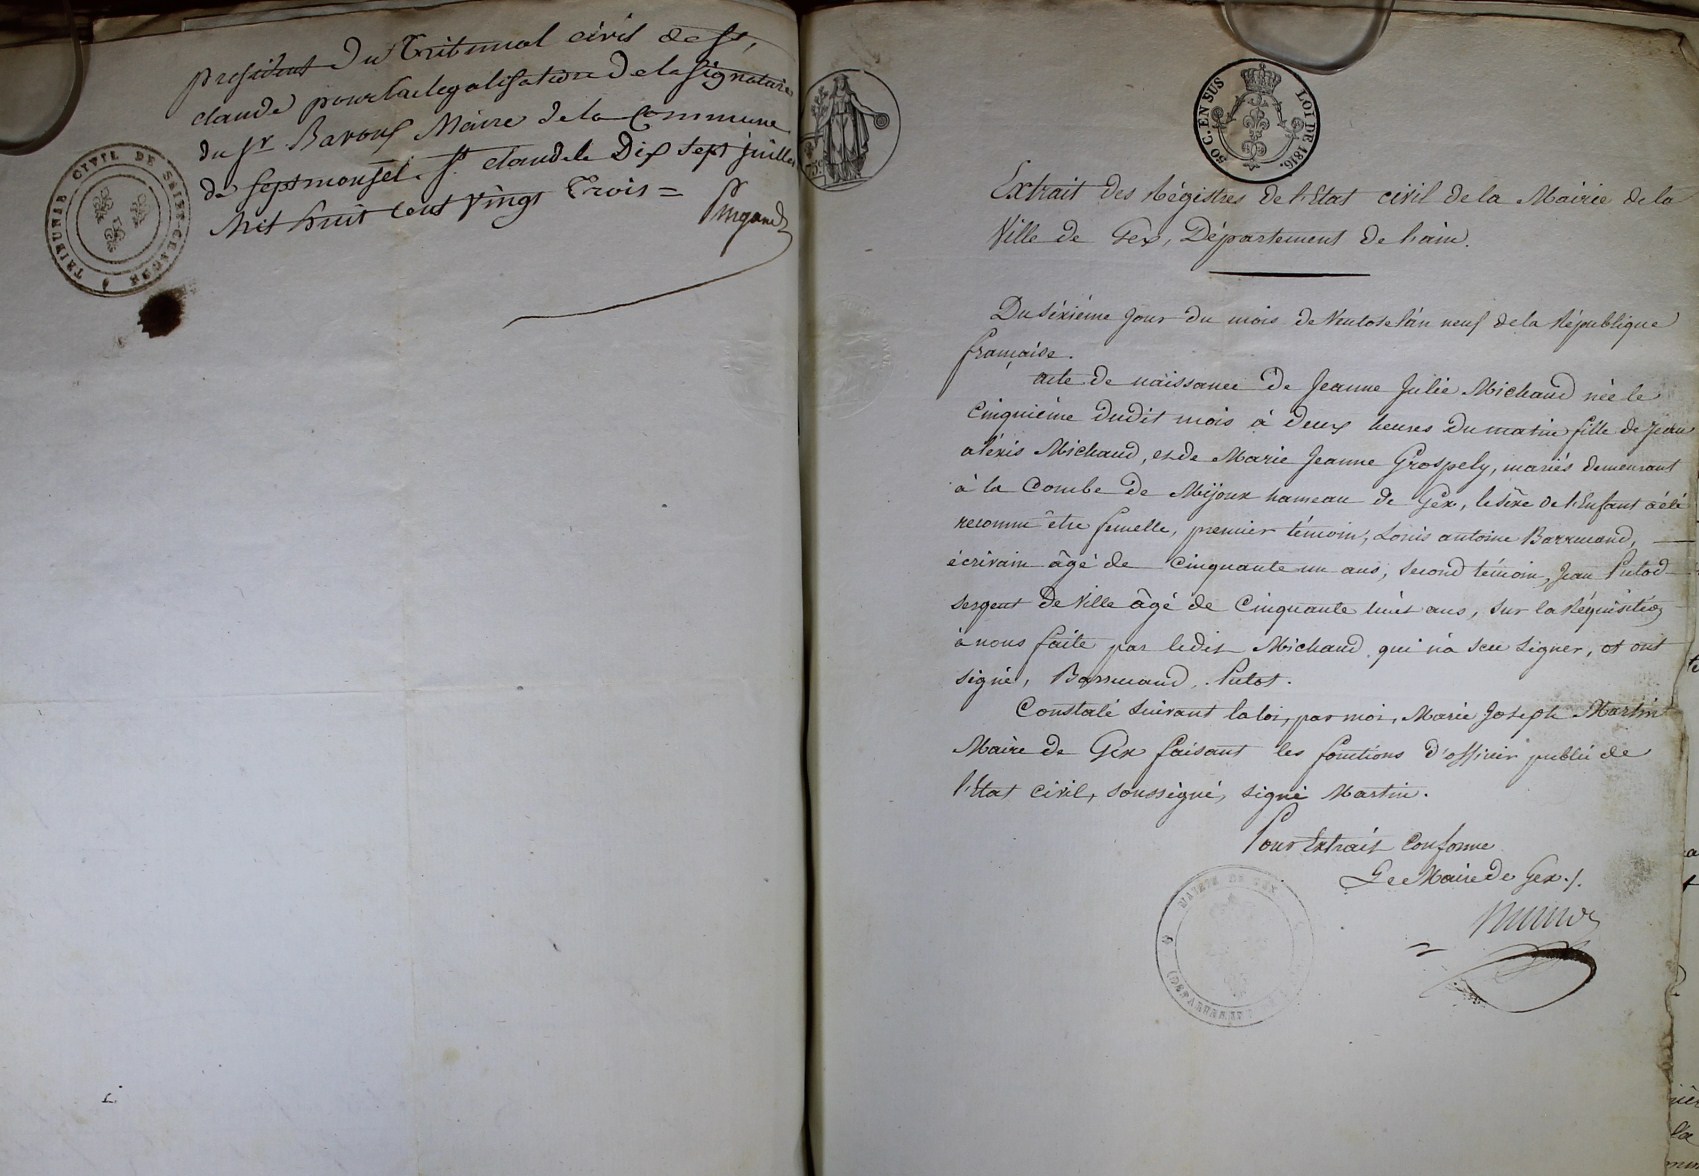 président du Tribunal civil de St,
claude pour la legalisation de la signature
du sr Bavoux Maire de la Commune
de septmonsel. St. claude le Dix sept juillet
Mil huit cent vingt Trois =
TRIBUNAL CIVIL DE SAINT-CLAUDE
50 C. EN SUS LOI DE 1816.
Extrait des Régistres de l'Etat civil de la Mairie de la
Ville de Gex, Département de l'ain.
Du sixième jour du mois de Ventose l'an neuf de la République
française.
acte de naissance de Jeanne Julie Michaud née le
cinquième dudit mois à deux heures du matin fille de Jean
aléxis Michaud, et de Marie Jeanne Grospely, mariés demeurant
à la Combe de Mijoux hameau de Gex, le séxe de l'Enfant a été
reconnu être femelle, premier témoin, Louis antoine Barruand,
écrivain âgé de Cinquante un ans, second témoin, Jean Putod
sergent de Ville âgé de Cinquante huit ans, sur la Réquisition
à nous faite par ledit Michaud qui n'a sçu signer, et ont
signé, Barruand, Putot.
Constaté suivant la loi, par moi, Marie Joseph Martin
Maire de Gex faisant les fonctions d'officier public de
l'Etat civil, soussigné, signé Martin.
Pour Extrait conforme
Le Maire de Gex ./.
MAIRIE DE GEX